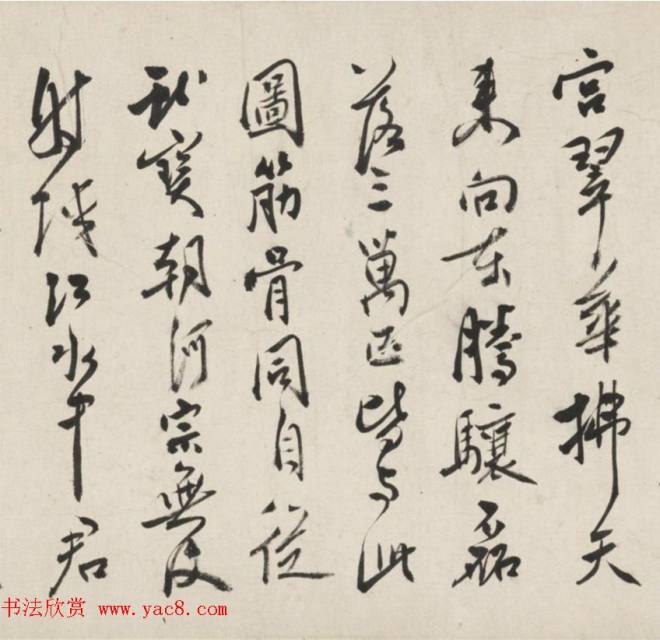 宫翠華拂天
来向东騰驤磊
落三萬匹皆与此
圖筋骨同自從
献寶朝河宗無復
射蛟江水中君
书法欣赏 www.yac8.com